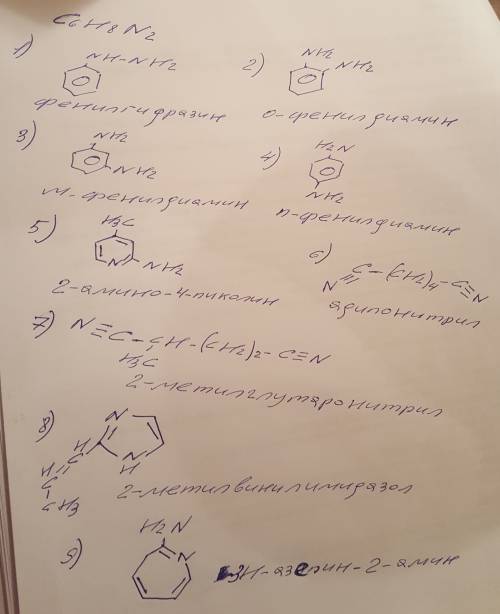 C6H8N2
1) NH-NH2
фенилгидразин
2) NH2 NH2
о-фенилдиамин
3) NH2 NH2
м-фенилдиамин
4) H2N NH2
п-фенилдиамин
5) H3C N NH2
2-амино-4-пиколин
6) N≡C-(CH2)4-C≡N
адипонитрил
7) N≡C-CH-(CH2)2-C≡N
H3C
2-метилглутаронитрил
8) N N H H C H C CH3
2-метилвинилимидазол
9) H2N N
3H-азепин-2-амин